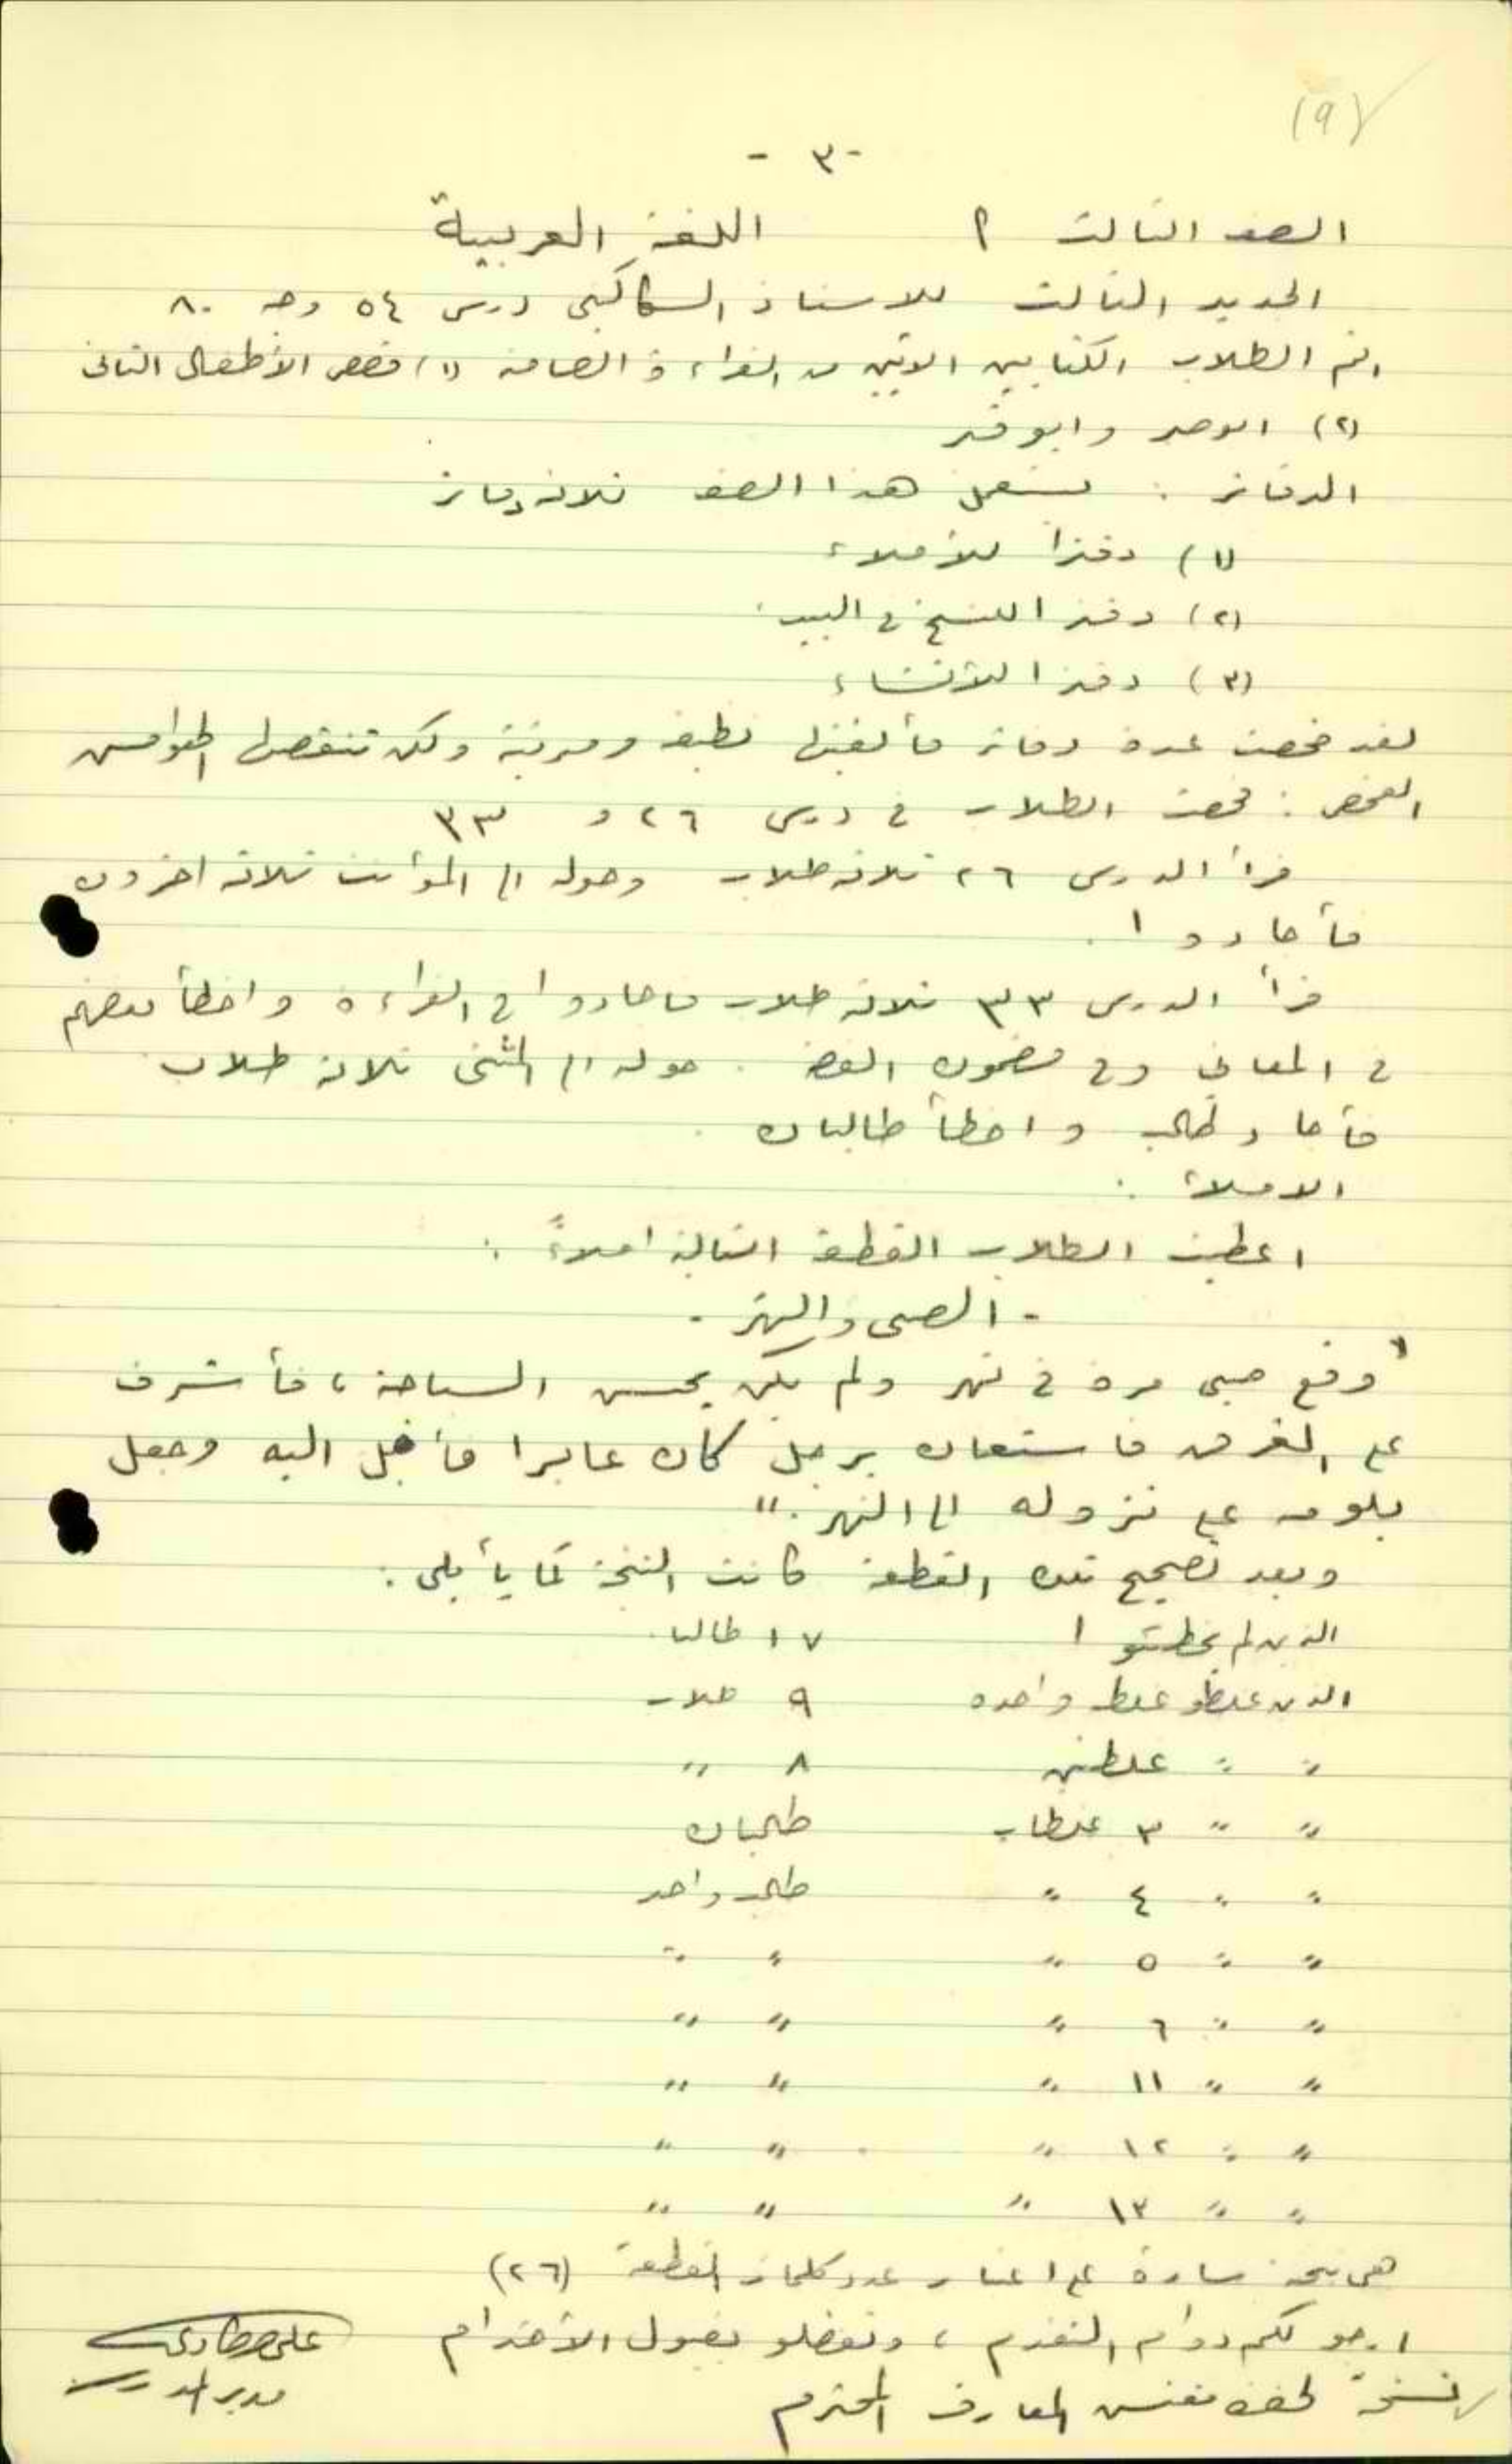 (٩)
- ٣ -
الصف الثالث أ اللغة العربية
الجديد الثالث للاستاذ السكاكيني درس ٥٤ وجه ٨٠
اتم الطلاب الكتابين الاتيين من القراءة الصامتة (١) قصص الأطفال الثاني
(٢) ابو صير وابو قير
الدفاتر : يستعمل هذا الصف ثلاثة دفاتر
(١) دفترا للأملاء
(٢) دفترا للنسخ في البيت
(٣) دفترا للأنشاء
لقد فحصت عدة دفاتر فألفيتها نظيفة ومرتبة ولكن تنقصها الهوامش
الفحص : فحصت الطلاب في درس ٢٦ و ٣٣
قرأ الدرس ٢٦ ثلاثة طلاب وحوله الى المؤنث ثلاثة اخرون
فأجادوا .
قرأ الدرس ٣٣ ثلاثة طلاب فاجادوا في القراءة واخطأ بعضهم
في المعاني وفي مضمون القصة . حوله الى المثنى ثلاثة طلاب
فأجاد طالب واخطأ طالبان .
الاملاء :
اعطيت الطلاب القطعة التالية املاءً :
- الصبي والنهر -
" وقع صبي مرة في نهر ولم يكن يحسن السباحة ، فأشرف
على الغرق فاستعان برجل كان عابرا فأقبل اليه وجعل
يلومه على نزوله الى النهر . "
وبعد تصحيح هذه القطعة كانت النتيجة كما يأيلي :
الذين لم يخطئوا ١٧ طالبا .
الذين غلطو غلطة واحدة ٩ طلاب
" " غلطتين ٨ "
" " ٣ غلطات طالبان
" " ٤ " طالب واحد
" " ٥ " " "
" " ٦ " " "
" " ١١ " " "
" " ١٢ " " "
" " ١٣ " " "
هي نتيجة سارة على اعتبار عدد كلمات القطعة (٢٦)
ارجو لكم دوام التقدم ، وتفضلو بقبول الأحترام
نسخة لحضرة مفتش المعارف المحترم
مدير المدرسة